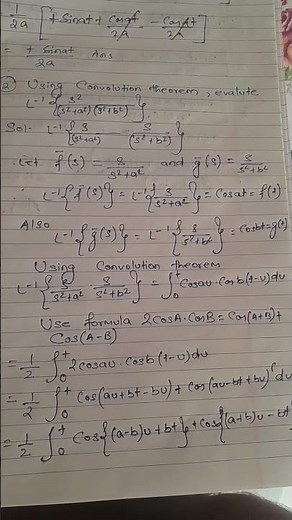 1/2a [t sinat + cosat/2a - cosat/2a]
= t sinat/2a Ans
② Using Convolution theorem, evalute
L⁻¹{s²/(s²+a²)(s²+b²)}
Sol- L⁻¹{s/(s²+a²) · s/(s²+b²)}
Let f̄(s) = s/s²+a² and ḡ(s) = s/s²+b²
∴ L⁻¹{f̄(s)} = L⁻¹{s/s²+a²} = cosat = f(t)
Also
L⁻¹{ḡ(s)} = L⁻¹{s/s²+b²} = cosbt = g(t)
Using Convolution theorem
L⁻¹{s/s²+a² · s/s²+b²} = ∫₀ᵗ cosau·cosb(t-u)du
Use formula 2cosA·cosB = cos(A+B)+
cos(A-B)
= 1/2 ∫₀ᵗ 2cosau·cosb(t-u)du
= 1/2 ∫₀ᵗ cos(au+bt-bu)+cos(au-bt+bu)du
= 1/2 ∫₀ᵗ cos{(a-b)u+bt}+cos{(a+b)u-bt